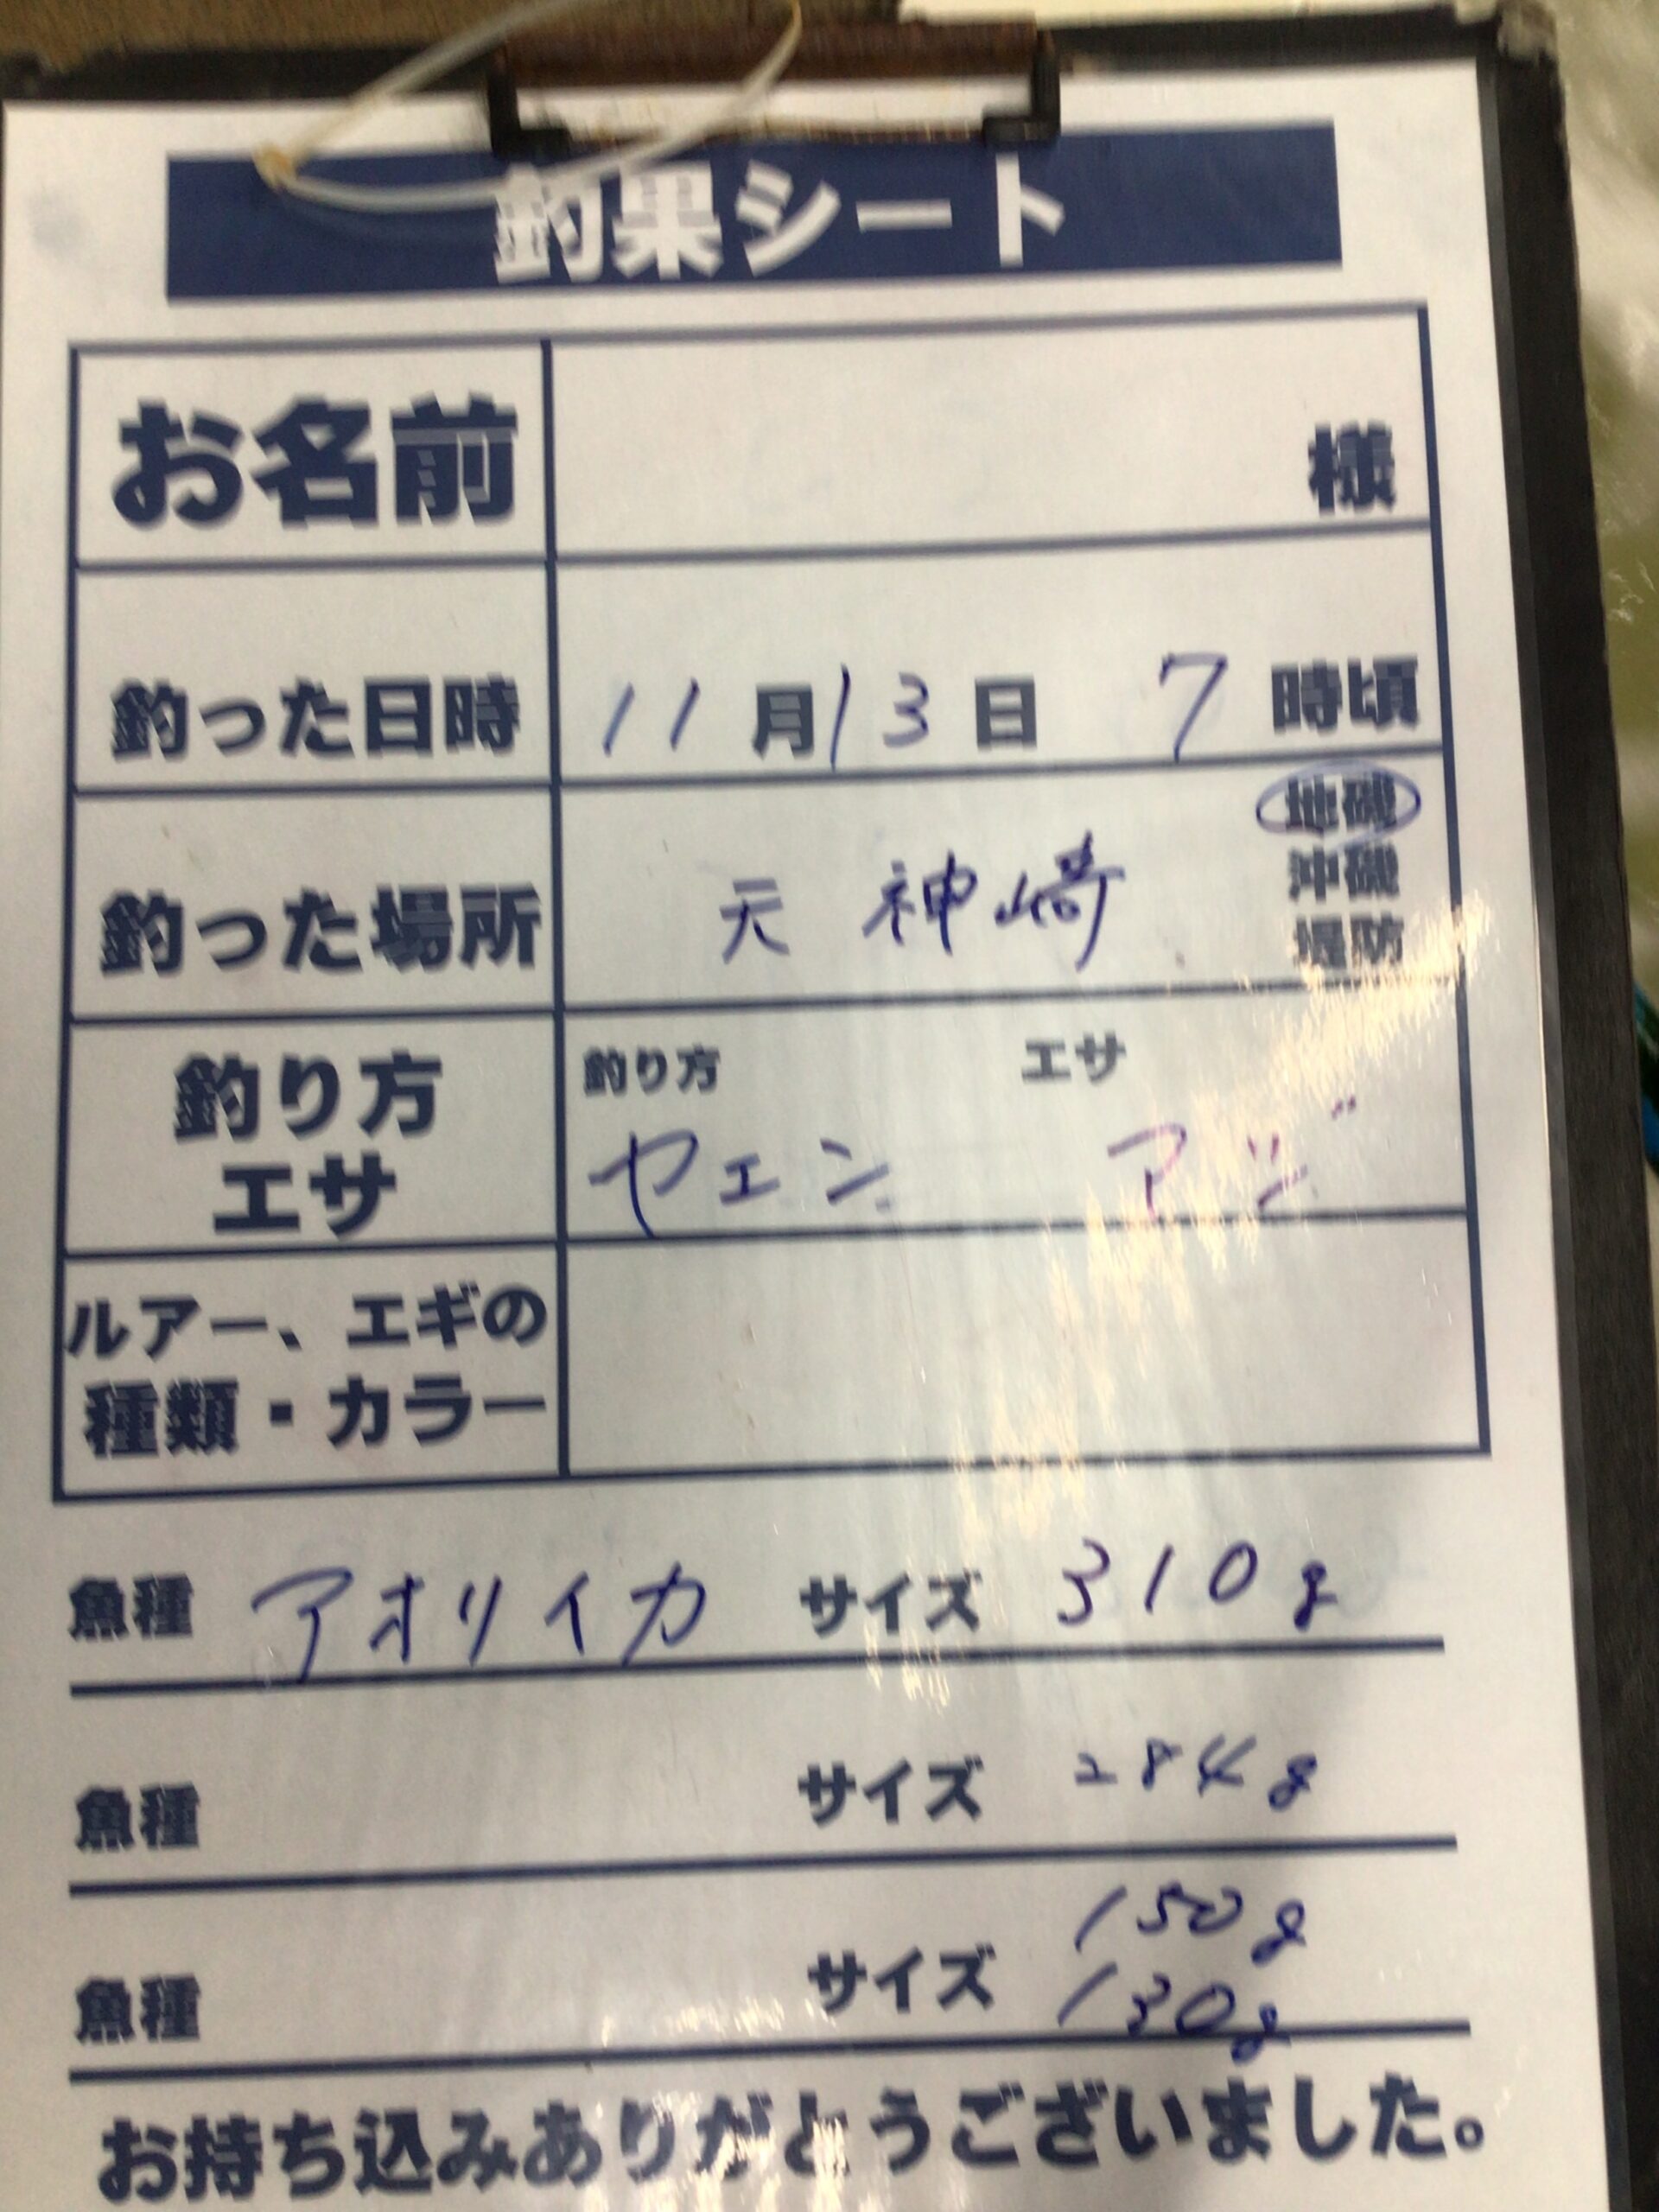 釣果シート
お名前 様
釣った日時 11月13日 7時頃
釣った場所 天神崎 地磯
沖磯
堤防
釣り方
エサ
釣り方 エサ
ヤエン アジ
ルアー、エギの
種類・カラー
魚種 アオリイカ サイズ 310g
魚種 サイズ 284g
150g
魚種 サイズ 130g
お持ち込みありがとうございました。